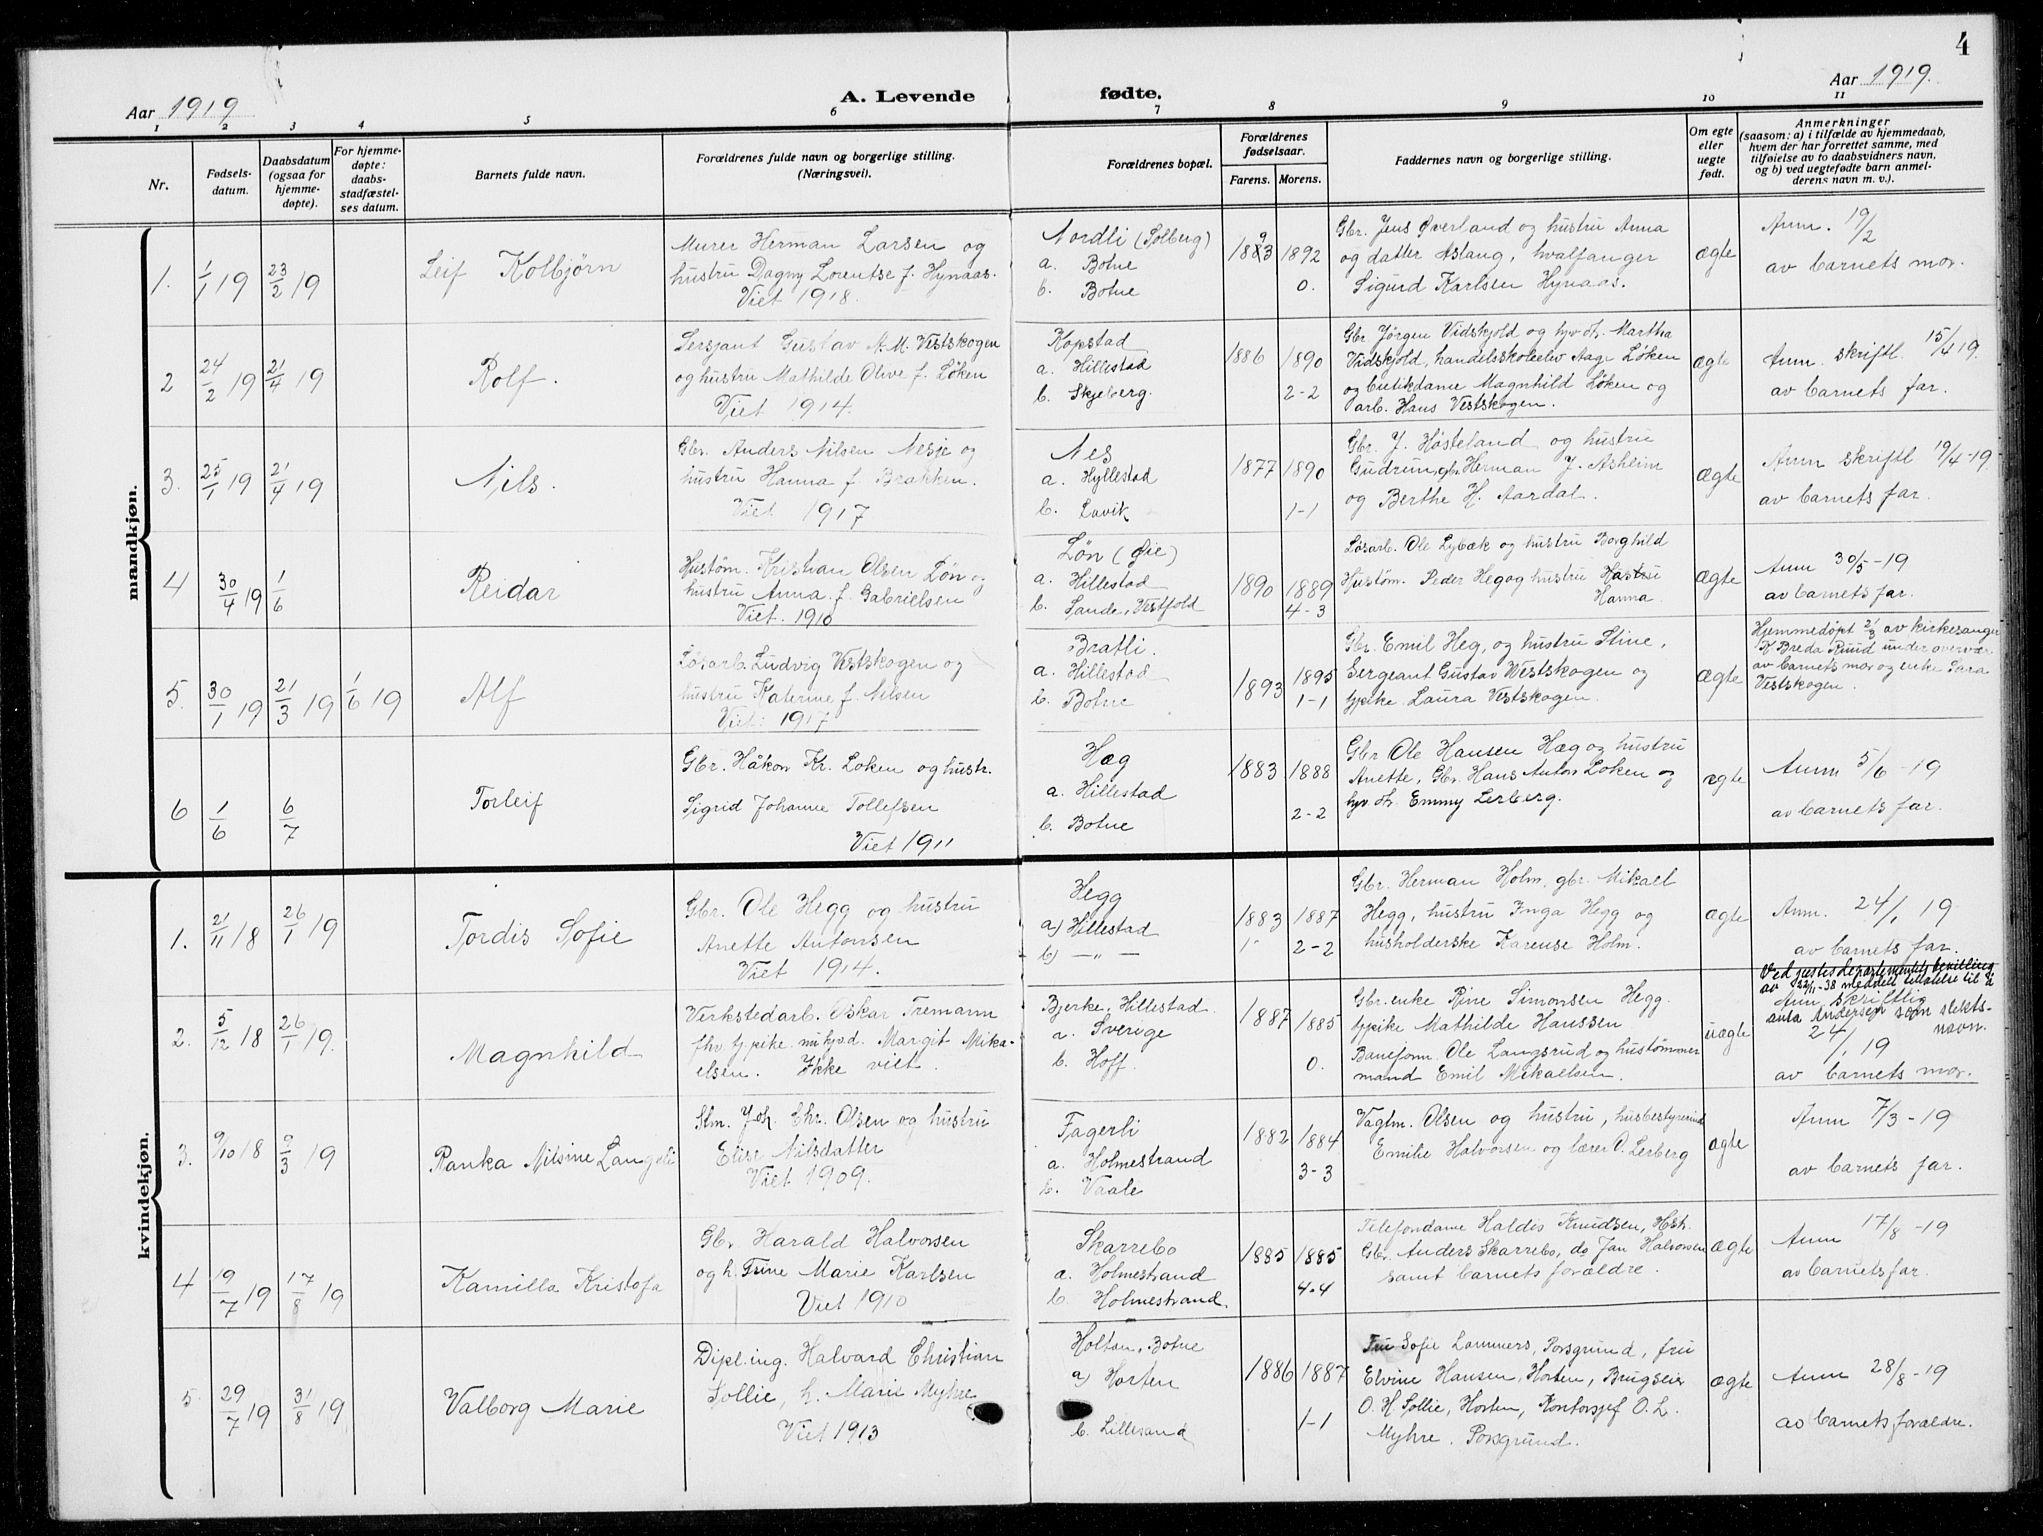 4
Aar 1919
A. Levende
fødte.
Aar 1919.
1 2 3 4 5 6 7 8 9 10 11
Nr.
Fødsels-
datum.
Daabsdatum
(ogsaa for
hjemme-
døpte).
For hjemme-
døpte:
daabs-
stadfæstel-
ses datum.
Barnets fulde navn.
Forældrenes fulde navn og borgerlige stilling.
(Næringsvei).
Forældrenes bopæl.
Forældrenes
fødselsaar.
Farens. Morens.
Faddernes navn og borgerlige stilling.
Om egte
eller
uegte
født.
Anmerkninger
(saasom: a) i tilfælde av hjemmedaab,
hvem der har forrettet samme, med
tilføielse av to daabsvidners navn,
og b) ved uegtefødte barn anmel-
derens navn m. v.).
mandkjøn.
1. 1/1 19 23/2 19
Leif Kolbjørn
Murer Herman Larsen og
hustru Dagny Lorentse f. Hynaas.
Viet 1918.
Nordli (Solberg)
a. Botne
b. Botne
1893 1892
0.
Gbr. Jens Øverland og hustru Anna
og datter Aslaug, hvalfanger
Sigurd Karlsen Hynaas.
ægte
Anm. 19/2
av barnets mor.
2 24/2 19 21/4 19
Rolf.
Sersjant Gustav A. M. Vestskogen
og hustru Mathilde Olive f. Løken
Viet 1914.
Kopstad
a. Hillestad
b. Skjeberg.
1886 1890
2-2
Gbr. Jørgen Vidskjold og hjv dt. Martha
Vidskjold, handelsskoleelev Aage Løken
og butikdame Magnhild Løken og
arb. Hans Vestskogen.
ægte
Anm. skriftl. 15/4 19.
av barnets far.
3. 25/1 19 21/4 19
Nils.
Gbr. Anders Nilsen Nesje og
hustru Hanna f. Brakken.
Viet 1917
Nes
a. Hyllestad
b. Lavik
1877 1890
1-1
Gbr. J. Høsteland og hustru
Gudrun, gbr. Herman J. Asheim
og Berthe H. Aardal.
ægte
Anm skriftl 19/4-19
av barnets far.
4 30/4 19 1/6
Reidar
Hustøm. Kristian Olsen Løn og
hustru Anna f. Gabrielsen
Viet. 1910
Løn (Øie)
a. Hillestad
b. Sande, Vestfold
1890 1889
4-3
Løsarb. Ole Lybæk og hustru Borghild
Hustøm. Peder Heg og hustru Hastru
Hanna.
ægte
Anm 30/5-19
av barnets far.
5. 30/1 19 21/3 19 1/6 19
Alf
Løsarb. Ludvig Vestskogen og
hustru Katerine f. Nilsen
Viet: 1917
Bratli.
a. Hillestad
b. Botne
1893 1895
1-1
Gbr. Emil Heg, og hustru Stine,
Sergeant Gustav Vestskogen og
pike Laura Vestskogen.
ægte
Hjemmedøpt 21/3 av kirkesanger
K. Breda Ruud under overvær
av barnets mor og enke Sara
Vestskogen.
6 1/6 6/7
Torleif
Gbr. Håkon Kr. Loken og hustr.
Sigrid Johanne Tollefsen
Viet 1911
Hæg
a. Hillestad
b. Botne
1883 1888
2-2
Gbr Ole Hansen Hæg og hustru
Anette, Gbr. Hans Anton Loken og
hjv. dt. Emmy Lerberg.
ægte
Anm 5/6-19
av barnets far.
kvindekjøn.
1. 21/11 18 26/1 19
Tordis Sofie
Gbr. Ole Hegg og hustru
Anette Antonsen
Viet 1914.
Hegg
a) Hillestad
b) — " —
1883 1887
2-2
Gbr. Herman Holm, gbr. Mikael
Hegg, hustru Inga Hegg og
husholderske Karense Holm.
ægte
Anm. 24/1 19
av barnets far.
2. 5/12 18 26/1 19.
Magnhild
Verkstedarb. Oskar Tremann
fhv. pike Margit Mika-
elsen. Ikke viet.
Bjerke, Hillestad.
a. Sverige
b. Hoff.
1887 1885
0.
Gbr. enke Rine Simonsen Hegg.
pike Mathilde Hanssen
Baneform. Ole Langsrud og hustømmer
mand Emil Mikaelsen.
uægte
Ved justisdepartementets bevilling
av 22/11-38 meddelt tillatelse til å
anta Andersen som slekts-
navn.
Anm. skriftlig
24/1 19
av barnets mor.
3. 9/10 18 9/3 19
Ranka Nilsine Langeli
Slm. Joh. Chr. Olsen og hustru
Elise Nilsdatter
Viet 1909.
Fagerli
a. Holmestrand
b. Vaale
1882 1884
3-3
Vagtm. Olsen og hustru, husbestyrerinde
Emilie Halvorsen og lærer O. Lerberg
ægte
Anm 7/3-19
av barnets far.
4 19/7 19 17/8 19
Kamilla Kristofa
Gbr Harald Halvorsen
og h. Trine Marie Karlsen
Viet 1910
Skarrebo
a. Holmestrand
b. Holmestrand.
1885 1885
4-4
Telefondame Haldis Knudsen, Hstr.
Gbr. Anders Skarrebo, do Jan Halvorsen
samt barnets forældre.
ægte
Anm 17/8-19
av barnets far.
5. 29/7 19 31/8 19
Valborg Marie
Dipl. ing. Halvard Christian
Sollie, h. Marie Myhre
Viet 1913
Holtan, Botne
a) Horten
b. Lillesand
1886 1887
1-1
Fru Sofie Lammers, Porsgrund, fru
Elvine Hansen, Horten, Brugseier
O. H. Sollie, Horten, Kontorsjef O. L.
Myhre. Porsgrund.
ægte
Anm 28/8-19
av barnets forældre.